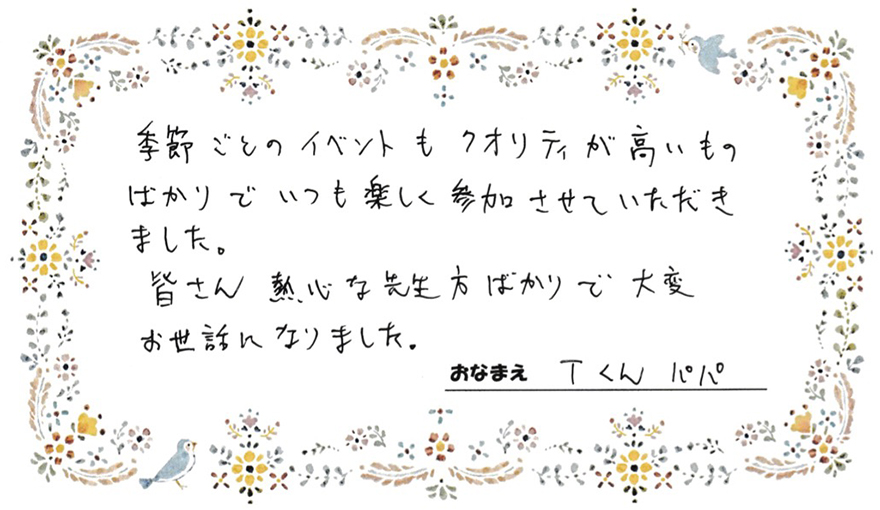 季節ごとのイベントもクオリティが高いもの
ばかりでいつも楽しく参加させていただき
ました。
皆さん熱心な先生方ばかりで大変
お世話になりました。
おなまえ Tくんパパ